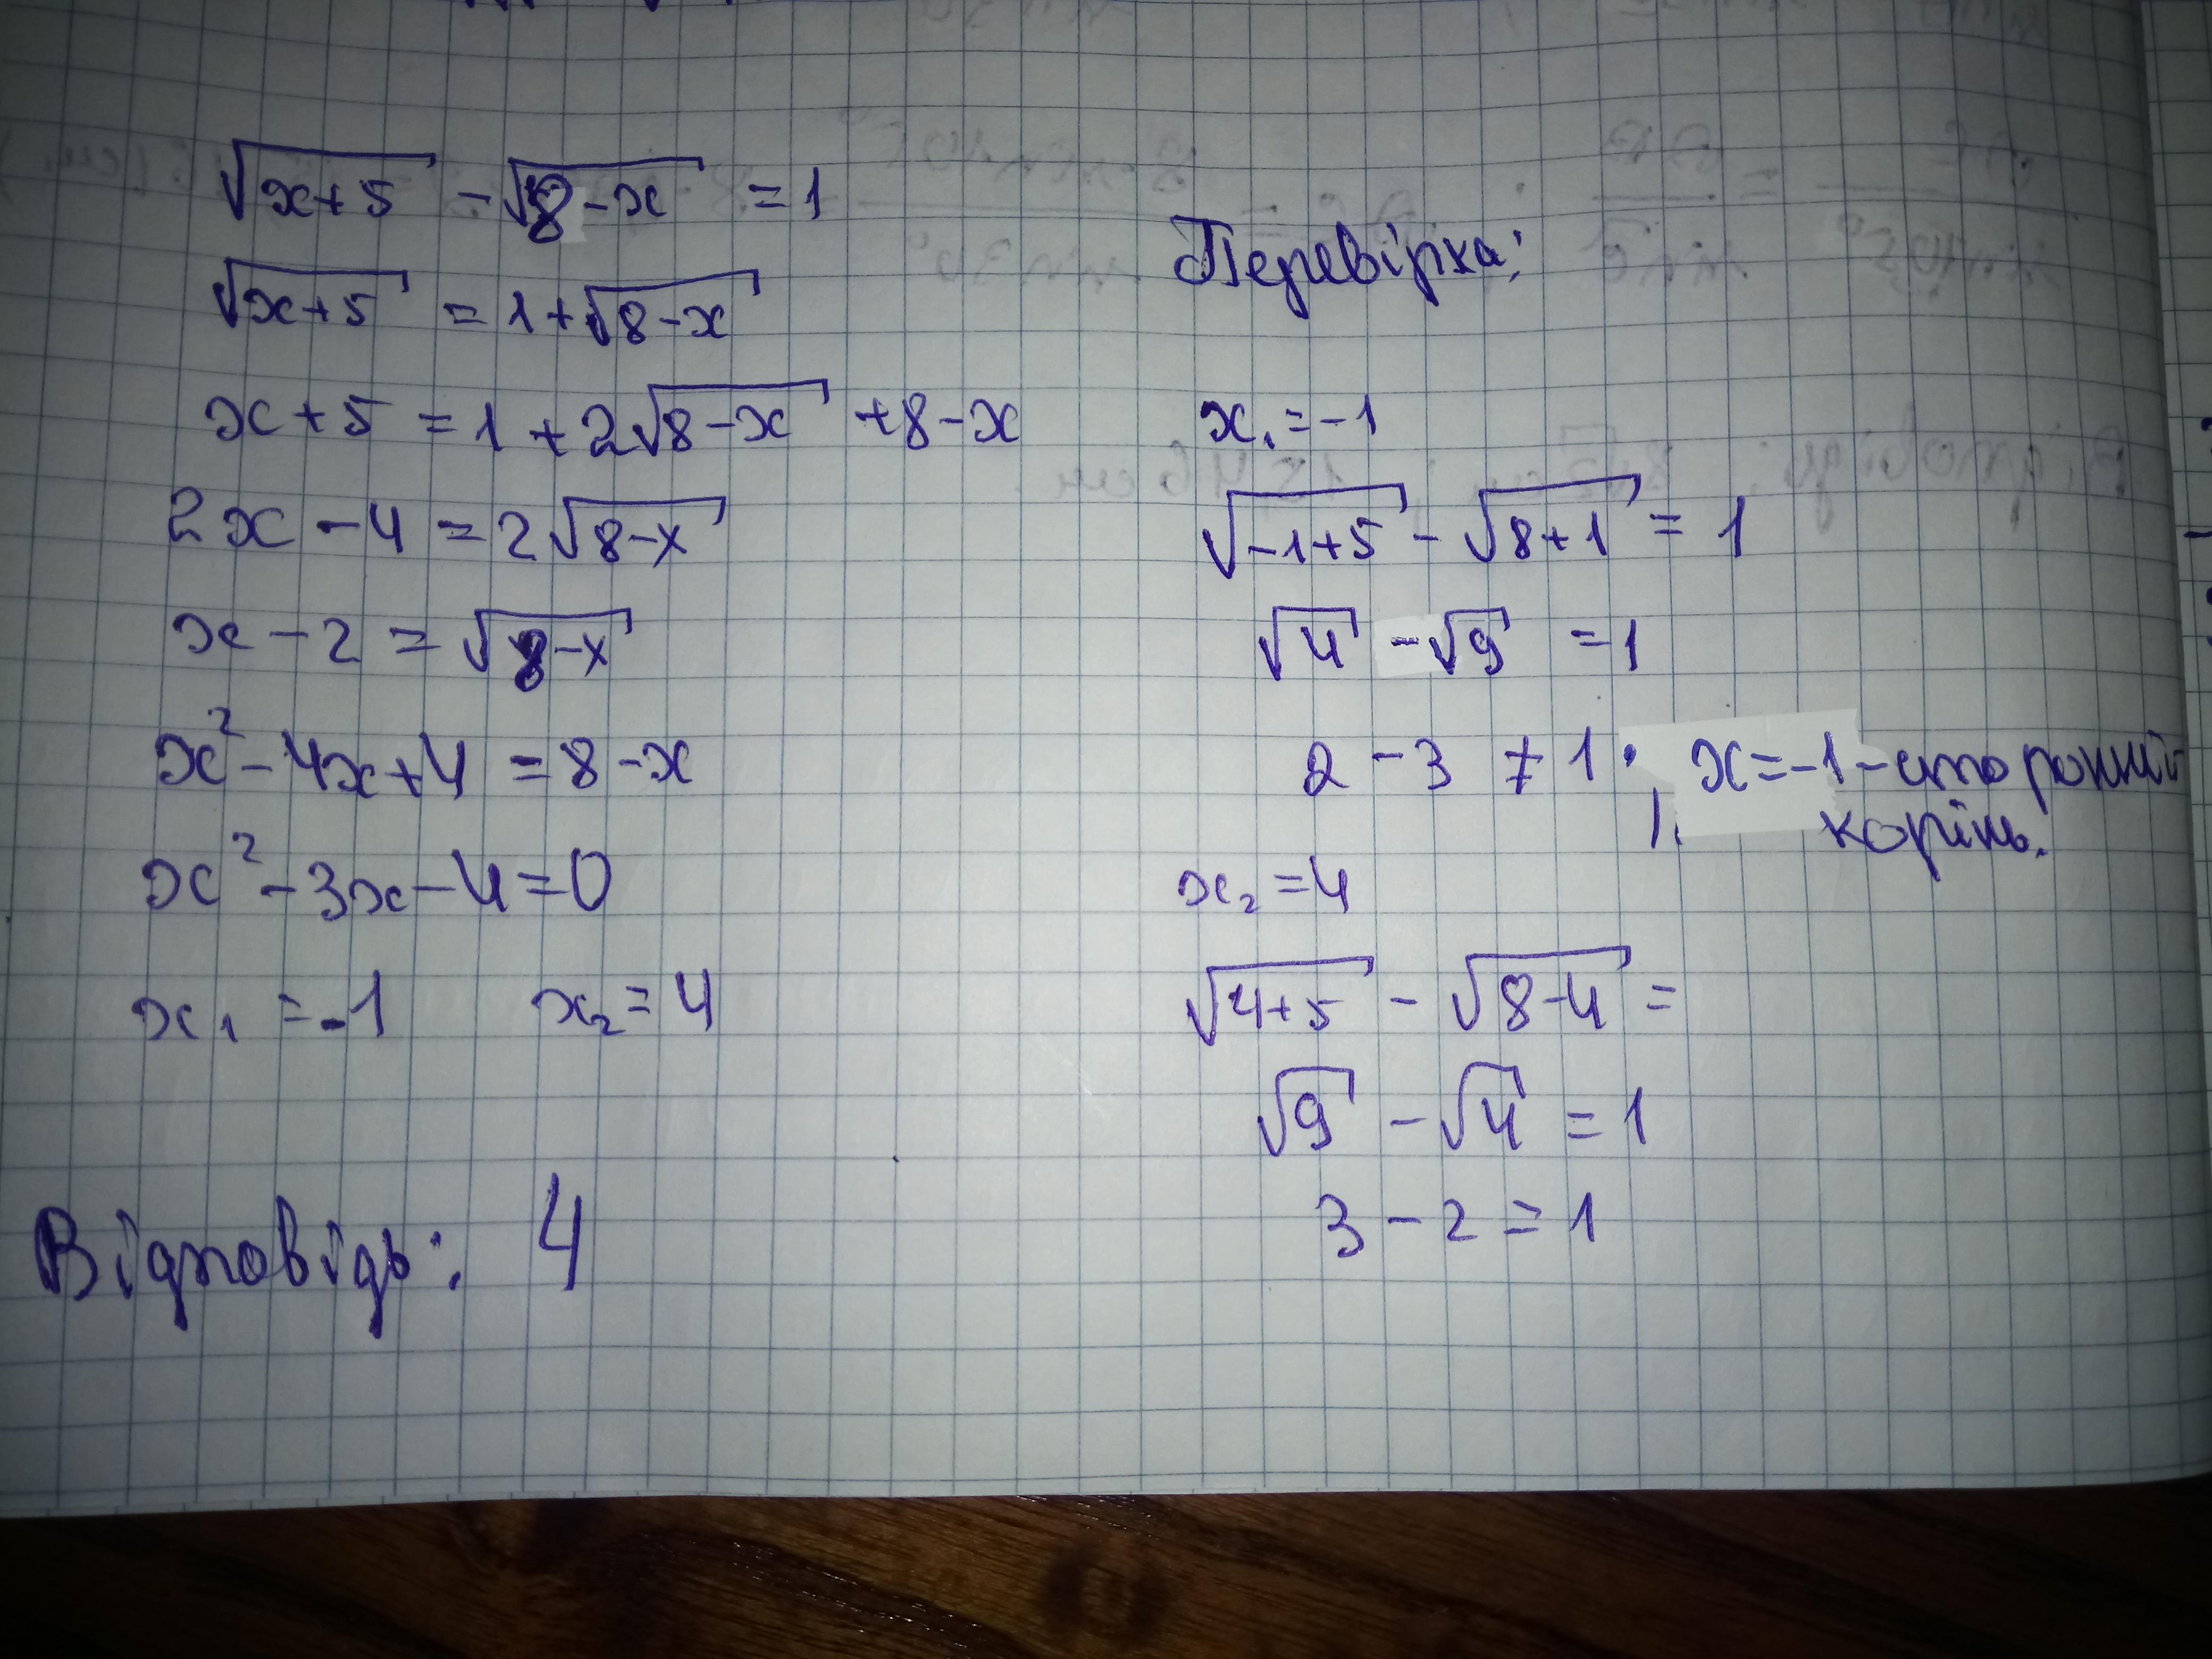 √x+5 - √8-x = 1
√x+5 = 1+√8-x
x+5 = 1+2√8-x +8-x
2x-4 = 2√8-x
x-2 = √8-x
x²-4x+4 = 8-x
x²-3x-4=0
x₁ = -1 x₂ = 4
Відповідь: 4
Перевірка:
x₁ = -1
√-1+5 - √8+1 = 1
√4 - √9 = 1
2 - 3 ≠ 1; x=-1-сторонній
корінь.
x₂ = 4
√4+5 - √8-4 =
√9 - √4 = 1
3 - 2 = 1